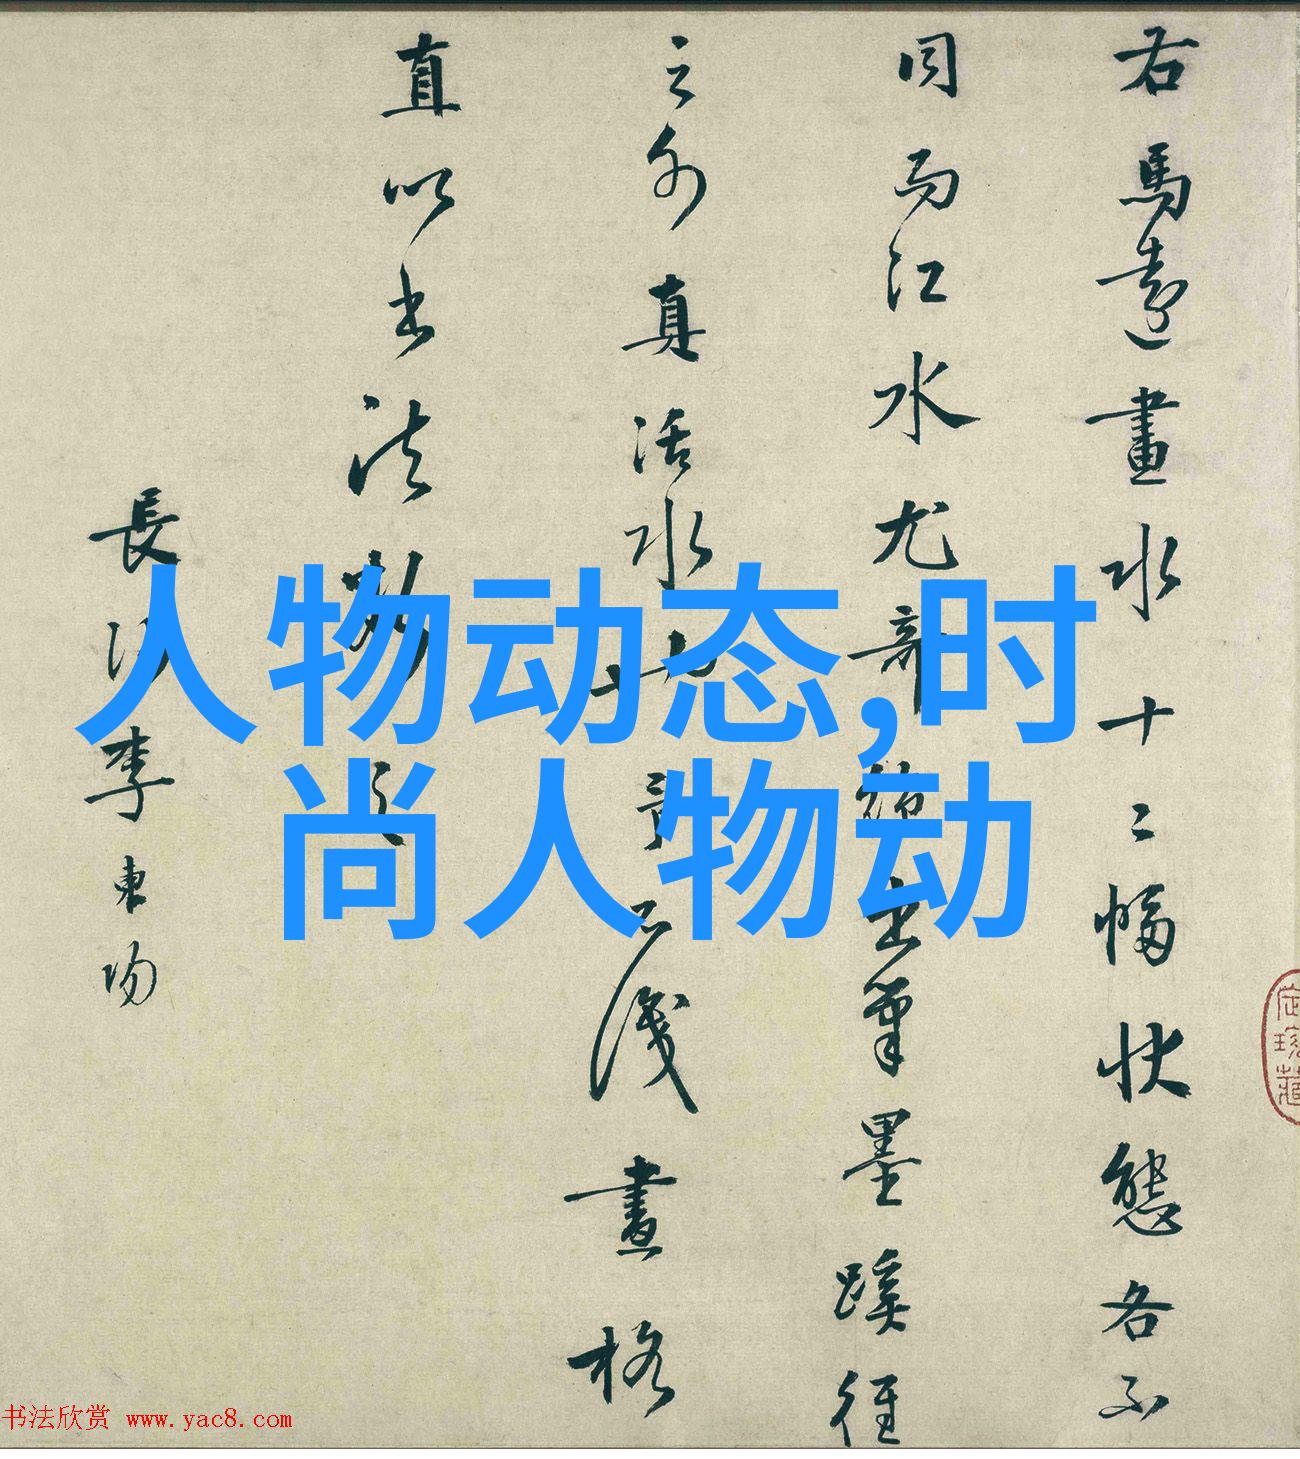 右馬遠畫水十二幅狀態各不
同而江水尤奇絕出筆墨蹊徑
之外真活水也予不識畫格
直以书法
長沙李東陽
人物动态,时
尚人物动
书法欣赏 www.yac8.com